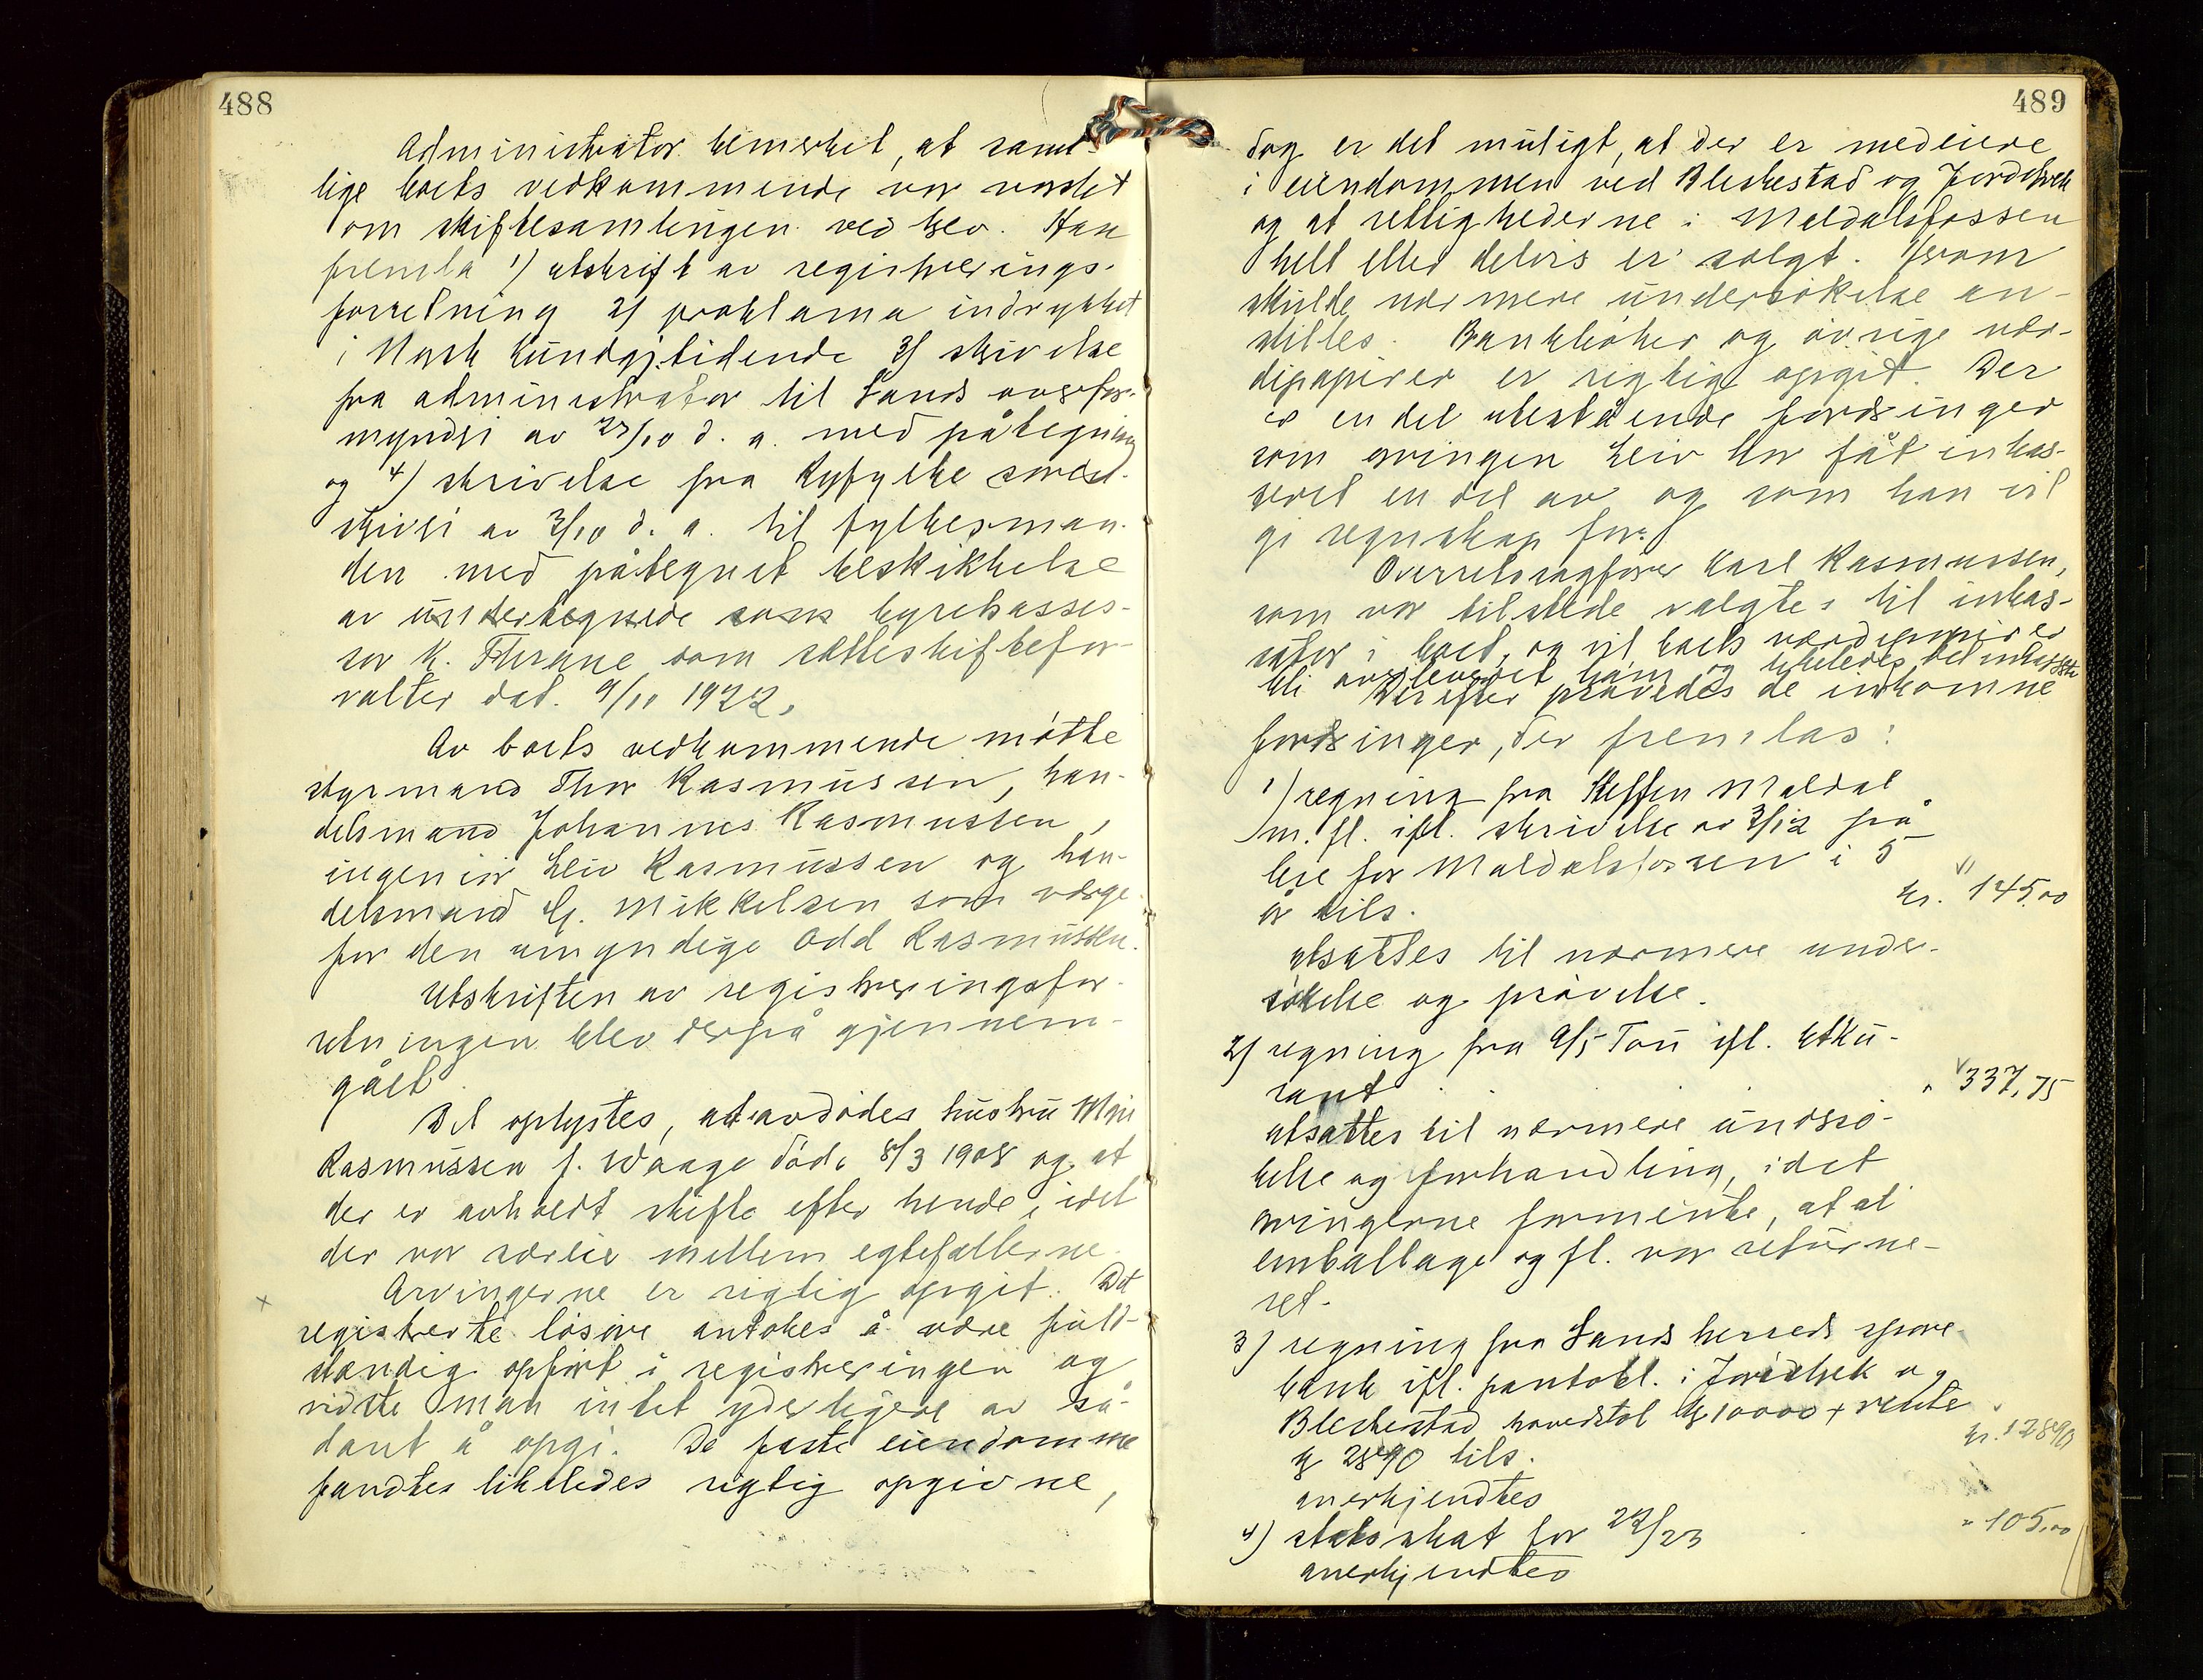 488
Administrator bemerket, at samt-
lige boets vedkommende var varslet
om skiftesamlingen ved brev. Han
fremla 1) utskrift av registrerings-
forretning 2) proklama indrykket
i Norsk Kundgj.tidende 3) skrivelse
fra administrator til Sands overfor-
mynderi av 23/10 d. a. med påtegning
og 4) skrivelse fra Ryfylke soren-
skriveri av 3/10 d. a. til fylkesman-
den med påtegnet beskikkelse
av undertegnede som byretsasses-
sor K. Thrane som setteskiftefor-
valter dat. 9/11 1922.
Av boets vedkommende møtte
styrmand Thor Rasmussen, han-
delsmand Johannes Rasmussen,
ingeniør Leiv Rasmussen og han-
delsmand G. Mikkelsen som verge
for den umyndige Odd Rasmussen.
Utskriften av registreringsfor-
retningen blev derpå gjennem-
gåt.
Det oplystes, at avdødes hustru
Rasmussen f. Waage døde 8/3 1908 og at
der er avholdt skifte efter hende, idet
der var særeie mellem egtefællerne.
x Arvingerne er rigtig opgit. Det
registrerte løsøre antokes å være fuld-
stændig opført i registreringen og
visste man intet yderligere av så-
dant å opgi. De faste eiendomme
fandtes likeledes rigtig opgivne,
489
dog er det muligt, at der er medeiere
i eiendommen ved Bleskestad og
og at rettighederne i Maldalsfossen
helt eller delvis er solgt. Herom
skulde nærmere undersøkelse an-
stilles. Bankbøker og øvrige vær-
dipapirer er rigtig opgit. Der
er en del utestående fordringer
som arvingen Leiv har fåt inkas-
seret en del av og som han vil
gi regnskap for.
Overretssagfører Karl Rasmussen,
som var tilstede valgtes til inkas-
sator i boet, og vil boets værdipapirer
bli overleveret ham og likeledes det inkasserte
Derefter prøvedes de indkomne
fordringer, der fremlas:
1) regning fra Steffen Maldal
m. fl. ifl. skrivelse av 3/12 på
leie for Maldalsfossen i 5
år tils. kr. 145,00
utsattes til nærmere under-
søkelse og prøvelse.
2) regning fra A/S Tou ifl. utku-
rant " 337,75
utsattes til nærmere undersø-
kelse og forhandling, idet
arvingerne formente, at al
emballage og fl. var returne-
ret.
3) regning fra Sands herreds spare-
bank ifl. pantobl. i og
Bleskestad hovedstol kr 10000 + rente
kr 2890 tils. kr. 12890
anerkjendtes
4) statsskat for 22/23 " 105,00
anerkjendtes